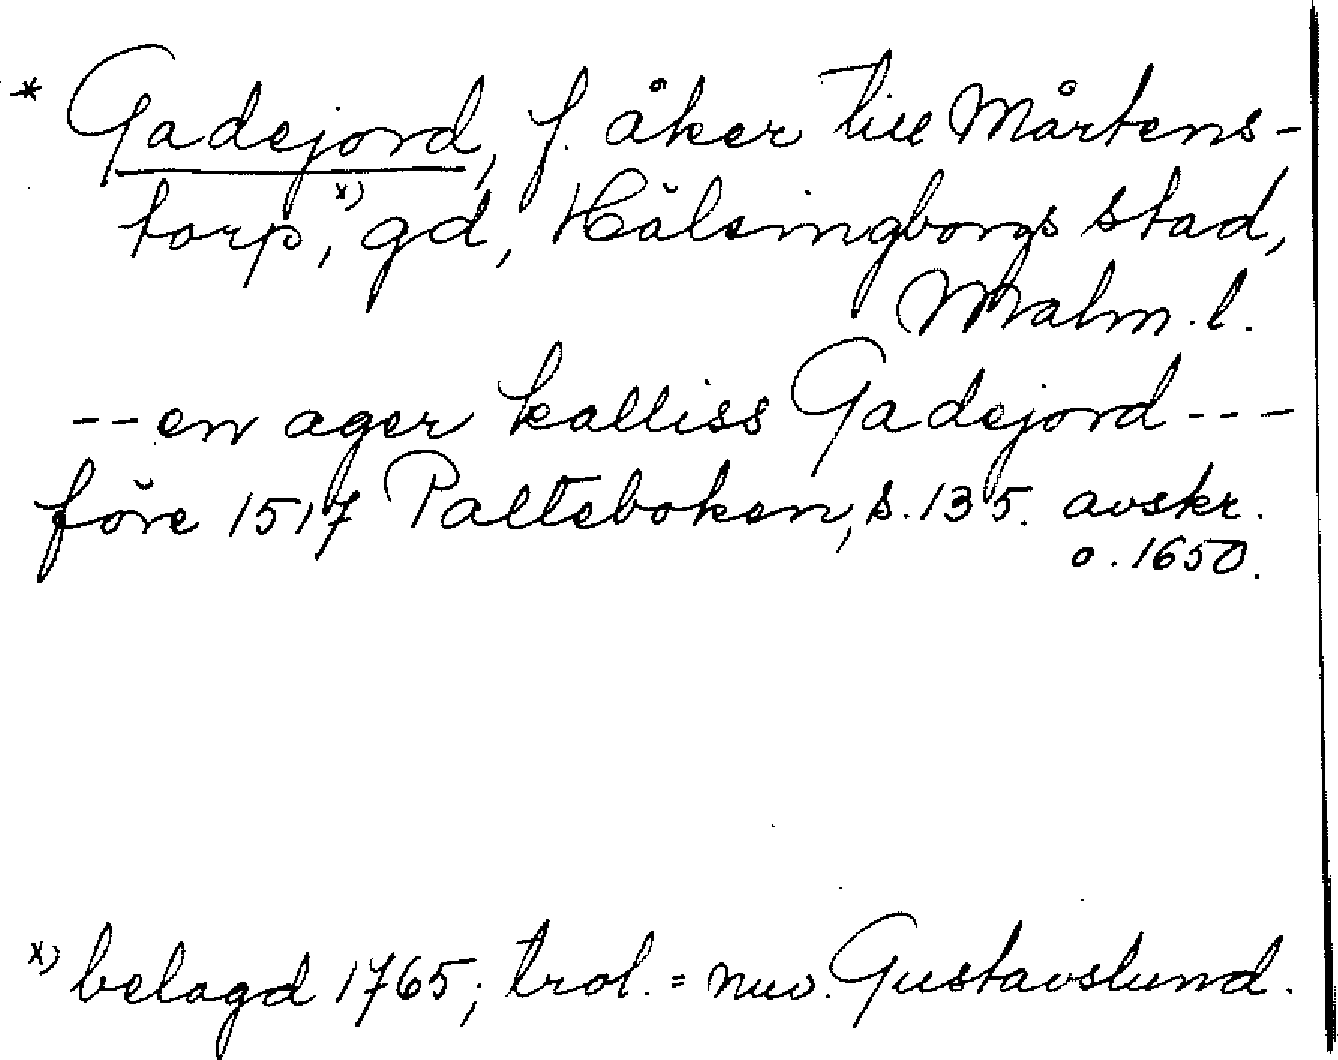 * Gadejord, f. åker till Mårtens-
torp,ˣ⁾ gd, Hälsingborgs stad,
Malm. l.
-- en ager kalliss Gadejord ---
före 1517 Palteboken, s. 135. avskr.
o. 1650.
x) belagd 1765; trol. = nuv. Gustavslund.